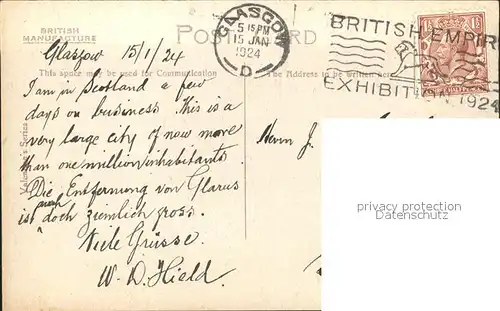 BRITISH
MANUFACTURE
POST CARD
GLASGOW
5 15 PM
15 JAN
1924
D
BRITISH EMPIRE
EXHIBITION 1924
Glasgow 15/1/24
This space may be used for Communication
The Address to be written here
I am in Scotland a few
days on business. This is a
very large city of now more
than one million inhabitants
Die Entfernung von Glarus
ist nun doch ziemlich gross.
Viele Grüsse.
W. D. Hield.
Valentine's Series
Herrn J.
privacy protection
Datenschutz